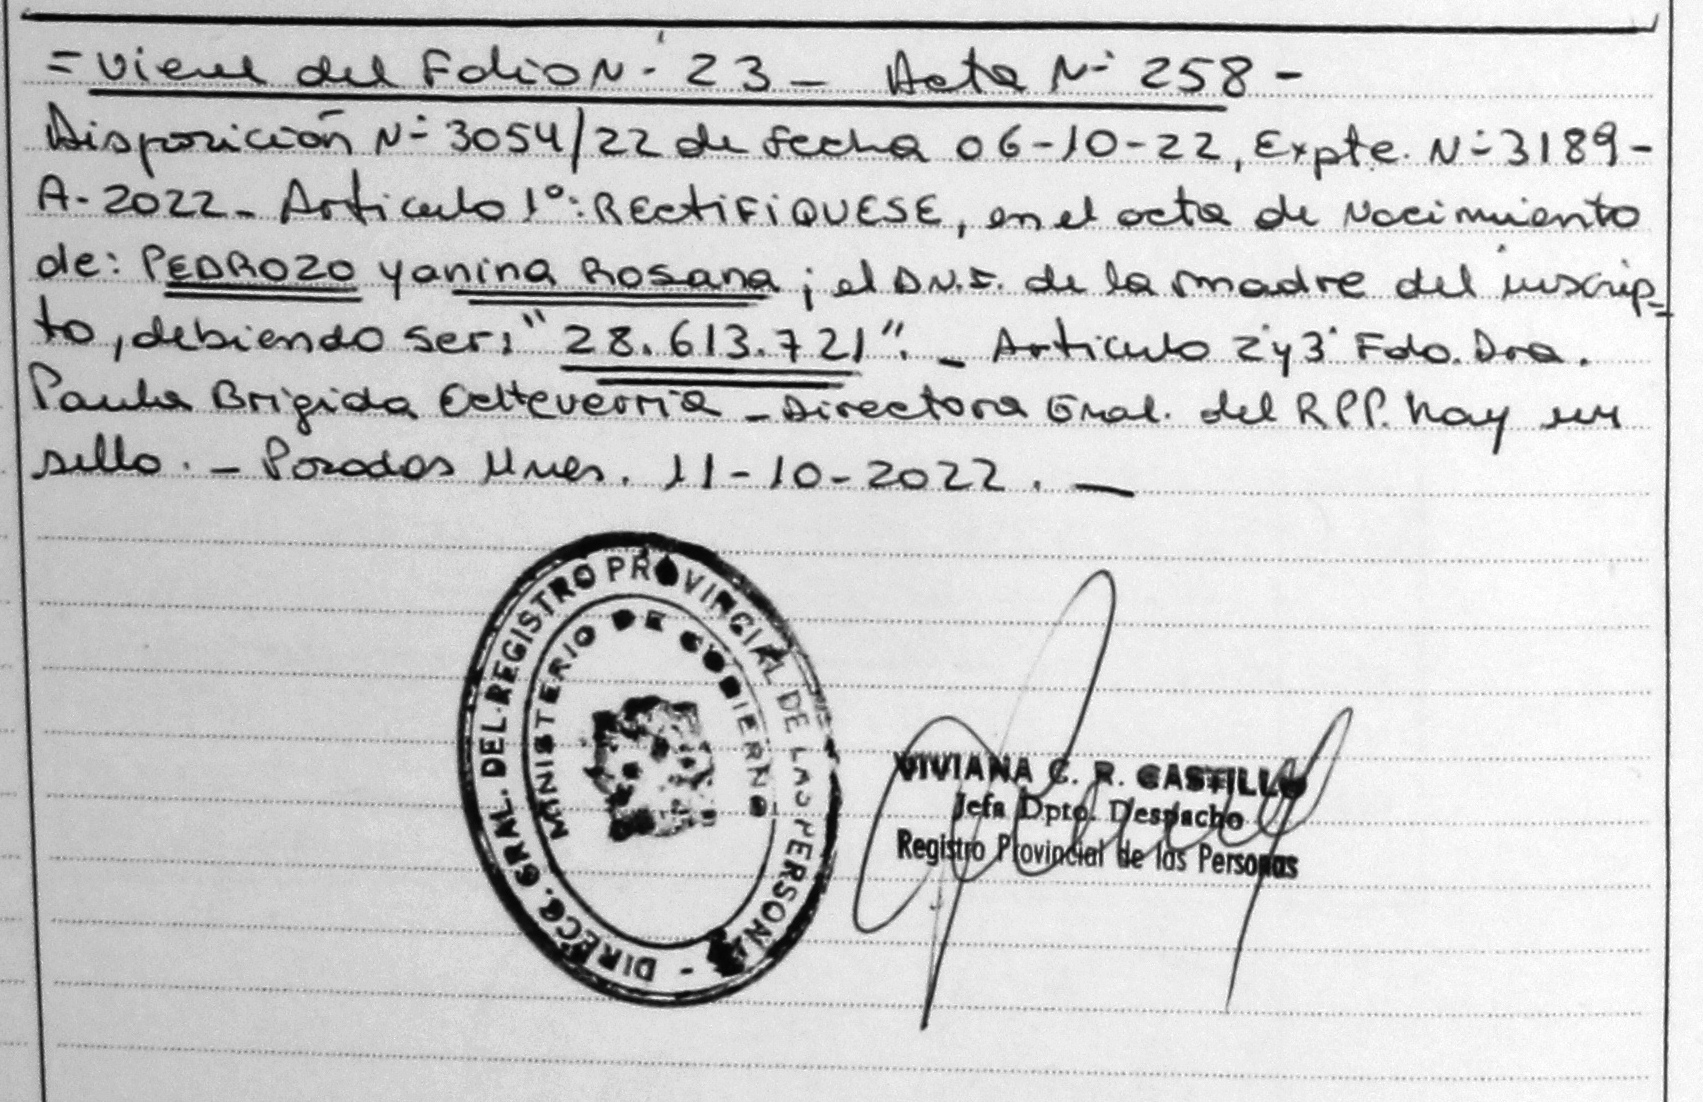 = Viene del Folio N- 23 - Acta N- 258 -
Disposición N- 3054/22 de fecha 06-10-22, Expte. N- 3189-
A-2022- Articulo 1º: RECTIFIQUESE, en el acta de Nacimiento
de: PEDROZO Yanina Rosana; el D.N.I. de la madre del inscrip-
to, debiendo ser: "28.613.721". - Articulo 2 y 3 Fdo. Dra.
Paula Brigida Echeverria - Directora Gral. del RPP. hay un
sello. - Posadas Mnes. 11-10-2022. -
DIRECC. GRAL. DEL REGISTRO PROVINCIAL DE LAS PERSONAS -
MINISTERIO DE GOBIERNO
VIVIANA C. R. CASTILLO
Jefa Dpto. Despacho
Registro Provincial de las Personas